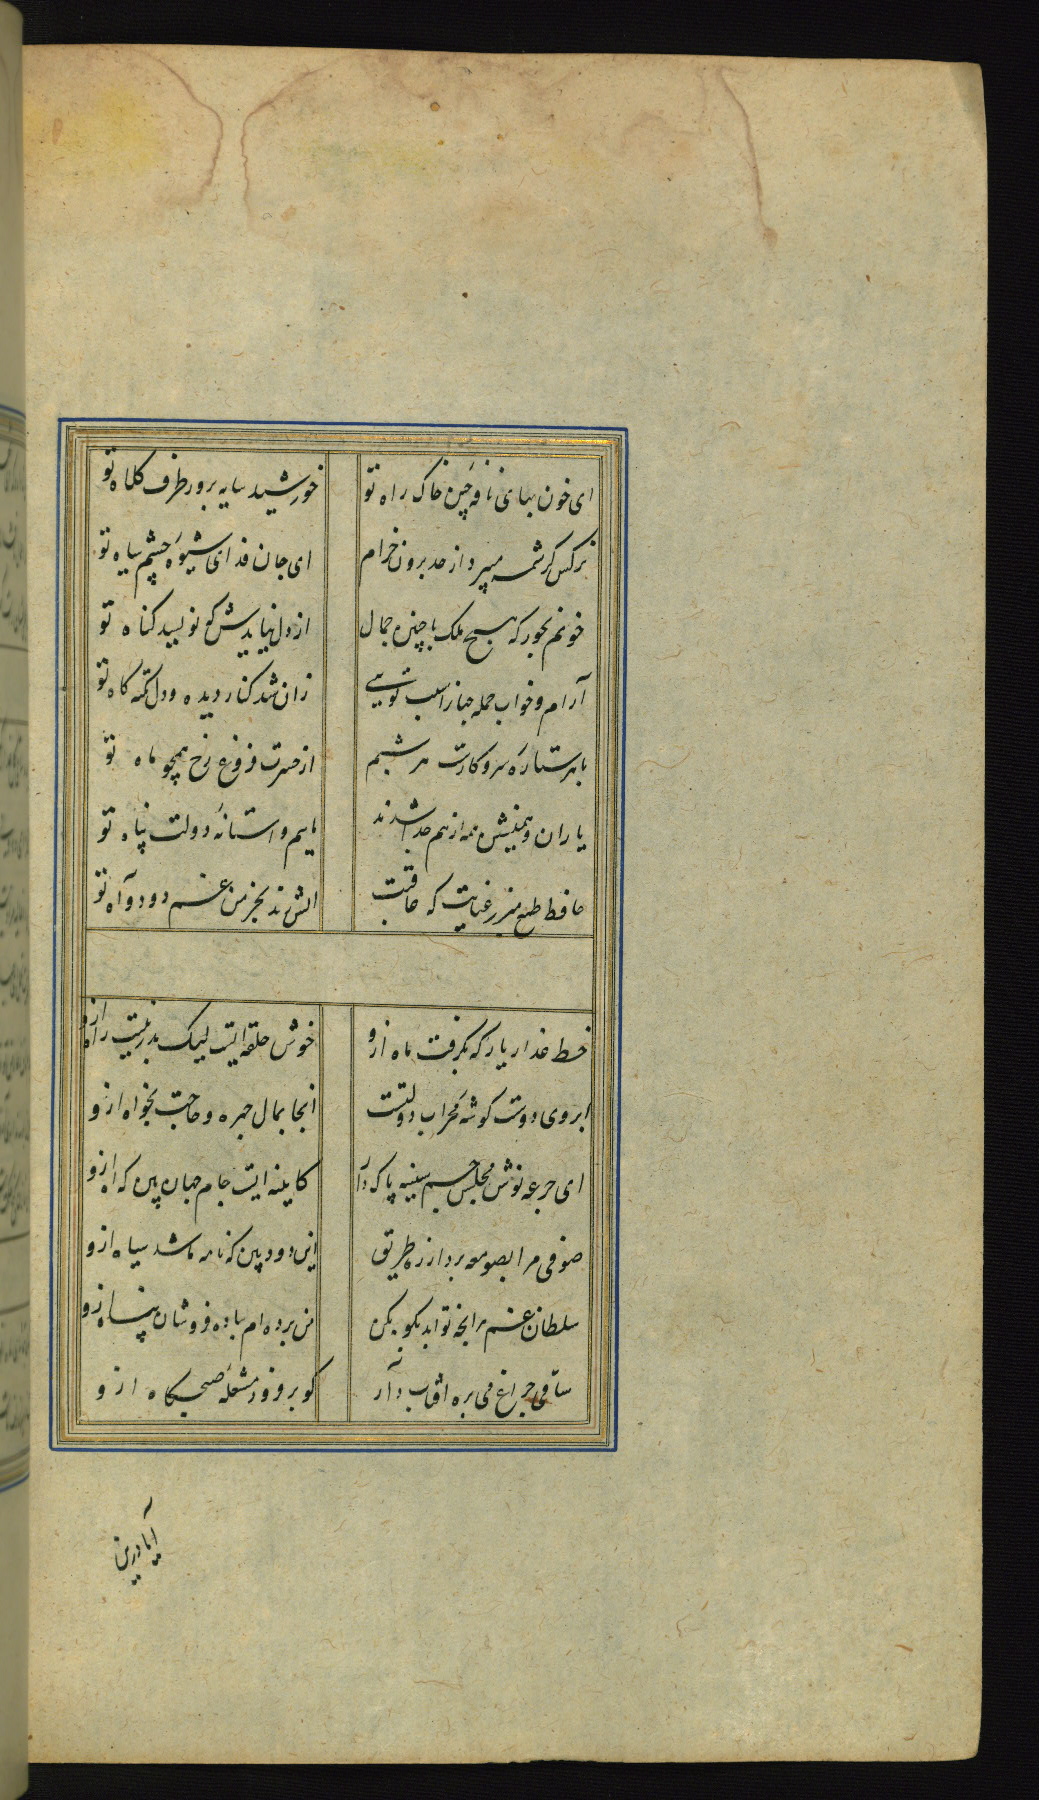 ای خون بهای نافه چین خاک راه تو خورشید سایه پرور طرف کلاه تو
نرکس کرشمه میبرد از حد برون خرام ای جان فدای شیوه چشم سیاه تو
خونم بخور که هیچ ملک با چنین جمال از دل نیایدش که نویسد کناه تو
آرام و خواب جمله جهانرا سبب تویی زان شد کنار دیده و دل تکیه کاه تو
با هر ستاره سر و کارست هر شبم از حسرت فروغ رخ همچو ماه تو
یاران همنشین همه از هم جدا شدند ماییم و استانه دولت پناه تو
حافظ طمع مبر ز عنایت که عاقبت اتش زند بخرمن غم دود آه تو
خط عذار یار که بکرفت ماه ازو خوش حلقه ایست لیک بدر نیست راه ازو
ابروی دوست کوشه محراب دولتست انجا بمال چهره و حاجت بخواه ازو
ای جرعه نوش مجلس جم سینه پاک دار کاینه ایست جام جهان بین که آه ازو
صوفی مرا بصومعه برد از ره طریق این دود بین که نامه ما شد سیاه ازو
سلطان غم هر انچه تواند بکو بکن من برده ام بباده فروشان پناه ازو
ساقی چراغ می بره افتاب دار کو برفروز مشعله صبحکاه ازو
آیا درین